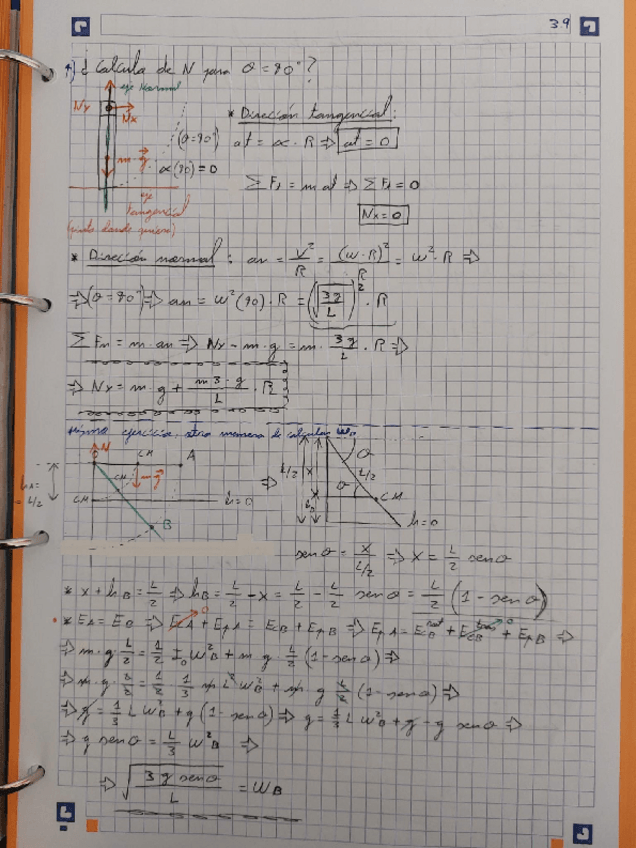 39
¿Calcula de N para θ = 90°?
eje normal
Nx
m·g
(θ=90°)
α(90)=0
eje tangencial
* Dirección tangencial:
at = α · R ⇒ at = 0
Σ Ft = m at ⇒ Σ Ft = 0
Nx = 0
* Dirección normal: an = V²/R = (w·R)²/R = w²·R ⇒
⇒ (θ=90°) ⇒ an = w²(90)·R = (√(3g/L))²·R
Σ Fn = m·an ⇒ Nx - m·g = m·3g/L·R ⇒
⇒ Nx = m·g + m3·g/L·R
mismo ejercicio, otra manera de calcular w
N
CM
A
CM
CM
h=0
B
hA= L/2
⇒
L/2
x
hB
θ
L/2
θ
CM
h=0
sen θ = x/(L/2) ⇒ x = L/2 sen θ
* x + hB = L/2 ⇒ hB = L/2 - x = L/2 - L/2 sen θ = L/2 (1 - sen θ)
* EA = EB ⇒ EcA + EpA = EcB + EpB ⇒ EpA = EcB rot + EcB tras + EpB ⇒
⇒ m·g·L/2 = 1/2 I₀ W²B + m g L/2 (1 - sen θ) ⇒
⇒ m·g·L/2 = 1/2 · 1/3 m L² W²B + m g L/2 (1 - sen θ) ⇒
⇒ g = 1/3 L W²B + g (1 - sen θ) ⇒ g = 1/3 L W²B + g - g sen θ ⇒
⇒ g sen θ = L/3 W²B ⇒
⇒ √(3 g sen θ / L) = WB